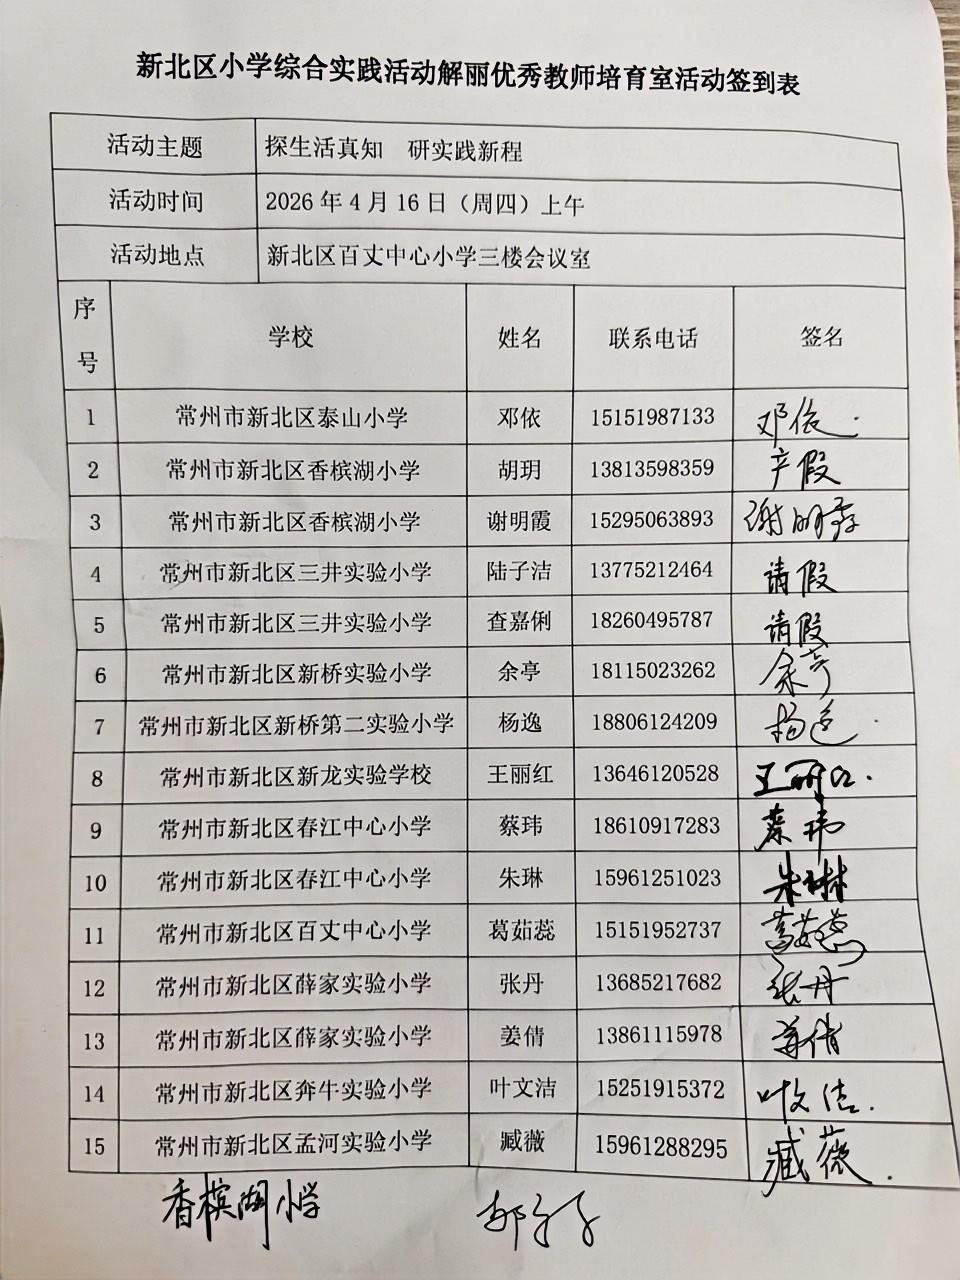 新北区小学综合实践活动解丽优秀教师培育室活动签到表
活动主题 探生活真知 研实践新程
活动时间 2026 年 4 月 16 日（周四）上午
活动地点 新北区百丈中心小学三楼会议室
序号 学校 姓名 联系电话 签名
1 常州市新北区泰山小学 邓依 15151987133 邓依.
2 常州市新北区香槟湖小学 胡玥 13813598359 产假
3 常州市新北区香槟湖小学 谢明霞 15295063893 谢明霞
4 常州市新北区三井实验小学 陆子洁 13775212464 请假
5 常州市新北区三井实验小学 查嘉俐 18260495787 请假
6 常州市新北区新桥实验小学 余亭 18115023262 余亭
7 常州市新北区新桥第二实验小学 杨逸 18806124209 杨逸.
8 常州市新北区新龙实验学校 王丽红 13646120528 王丽红.
9 常州市新北区春江中心小学 蔡玮 18610917283 蔡玮
10 常州市新北区春江中心小学 朱琳 15961251023 朱琳
11 常州市新北区百丈中心小学 葛茹蕊 15151952737 葛茹蕊
12 常州市新北区薛家实验小学 张丹 13685217682 张丹
13 常州市新北区薛家实验小学 姜倩 13861115978 姜倩
14 常州市新北区奔牛实验小学 叶文洁 15251915372 叶文洁.
15 常州市新北区孟河实验小学 臧薇 15961288295 臧薇.
香槟湖小学